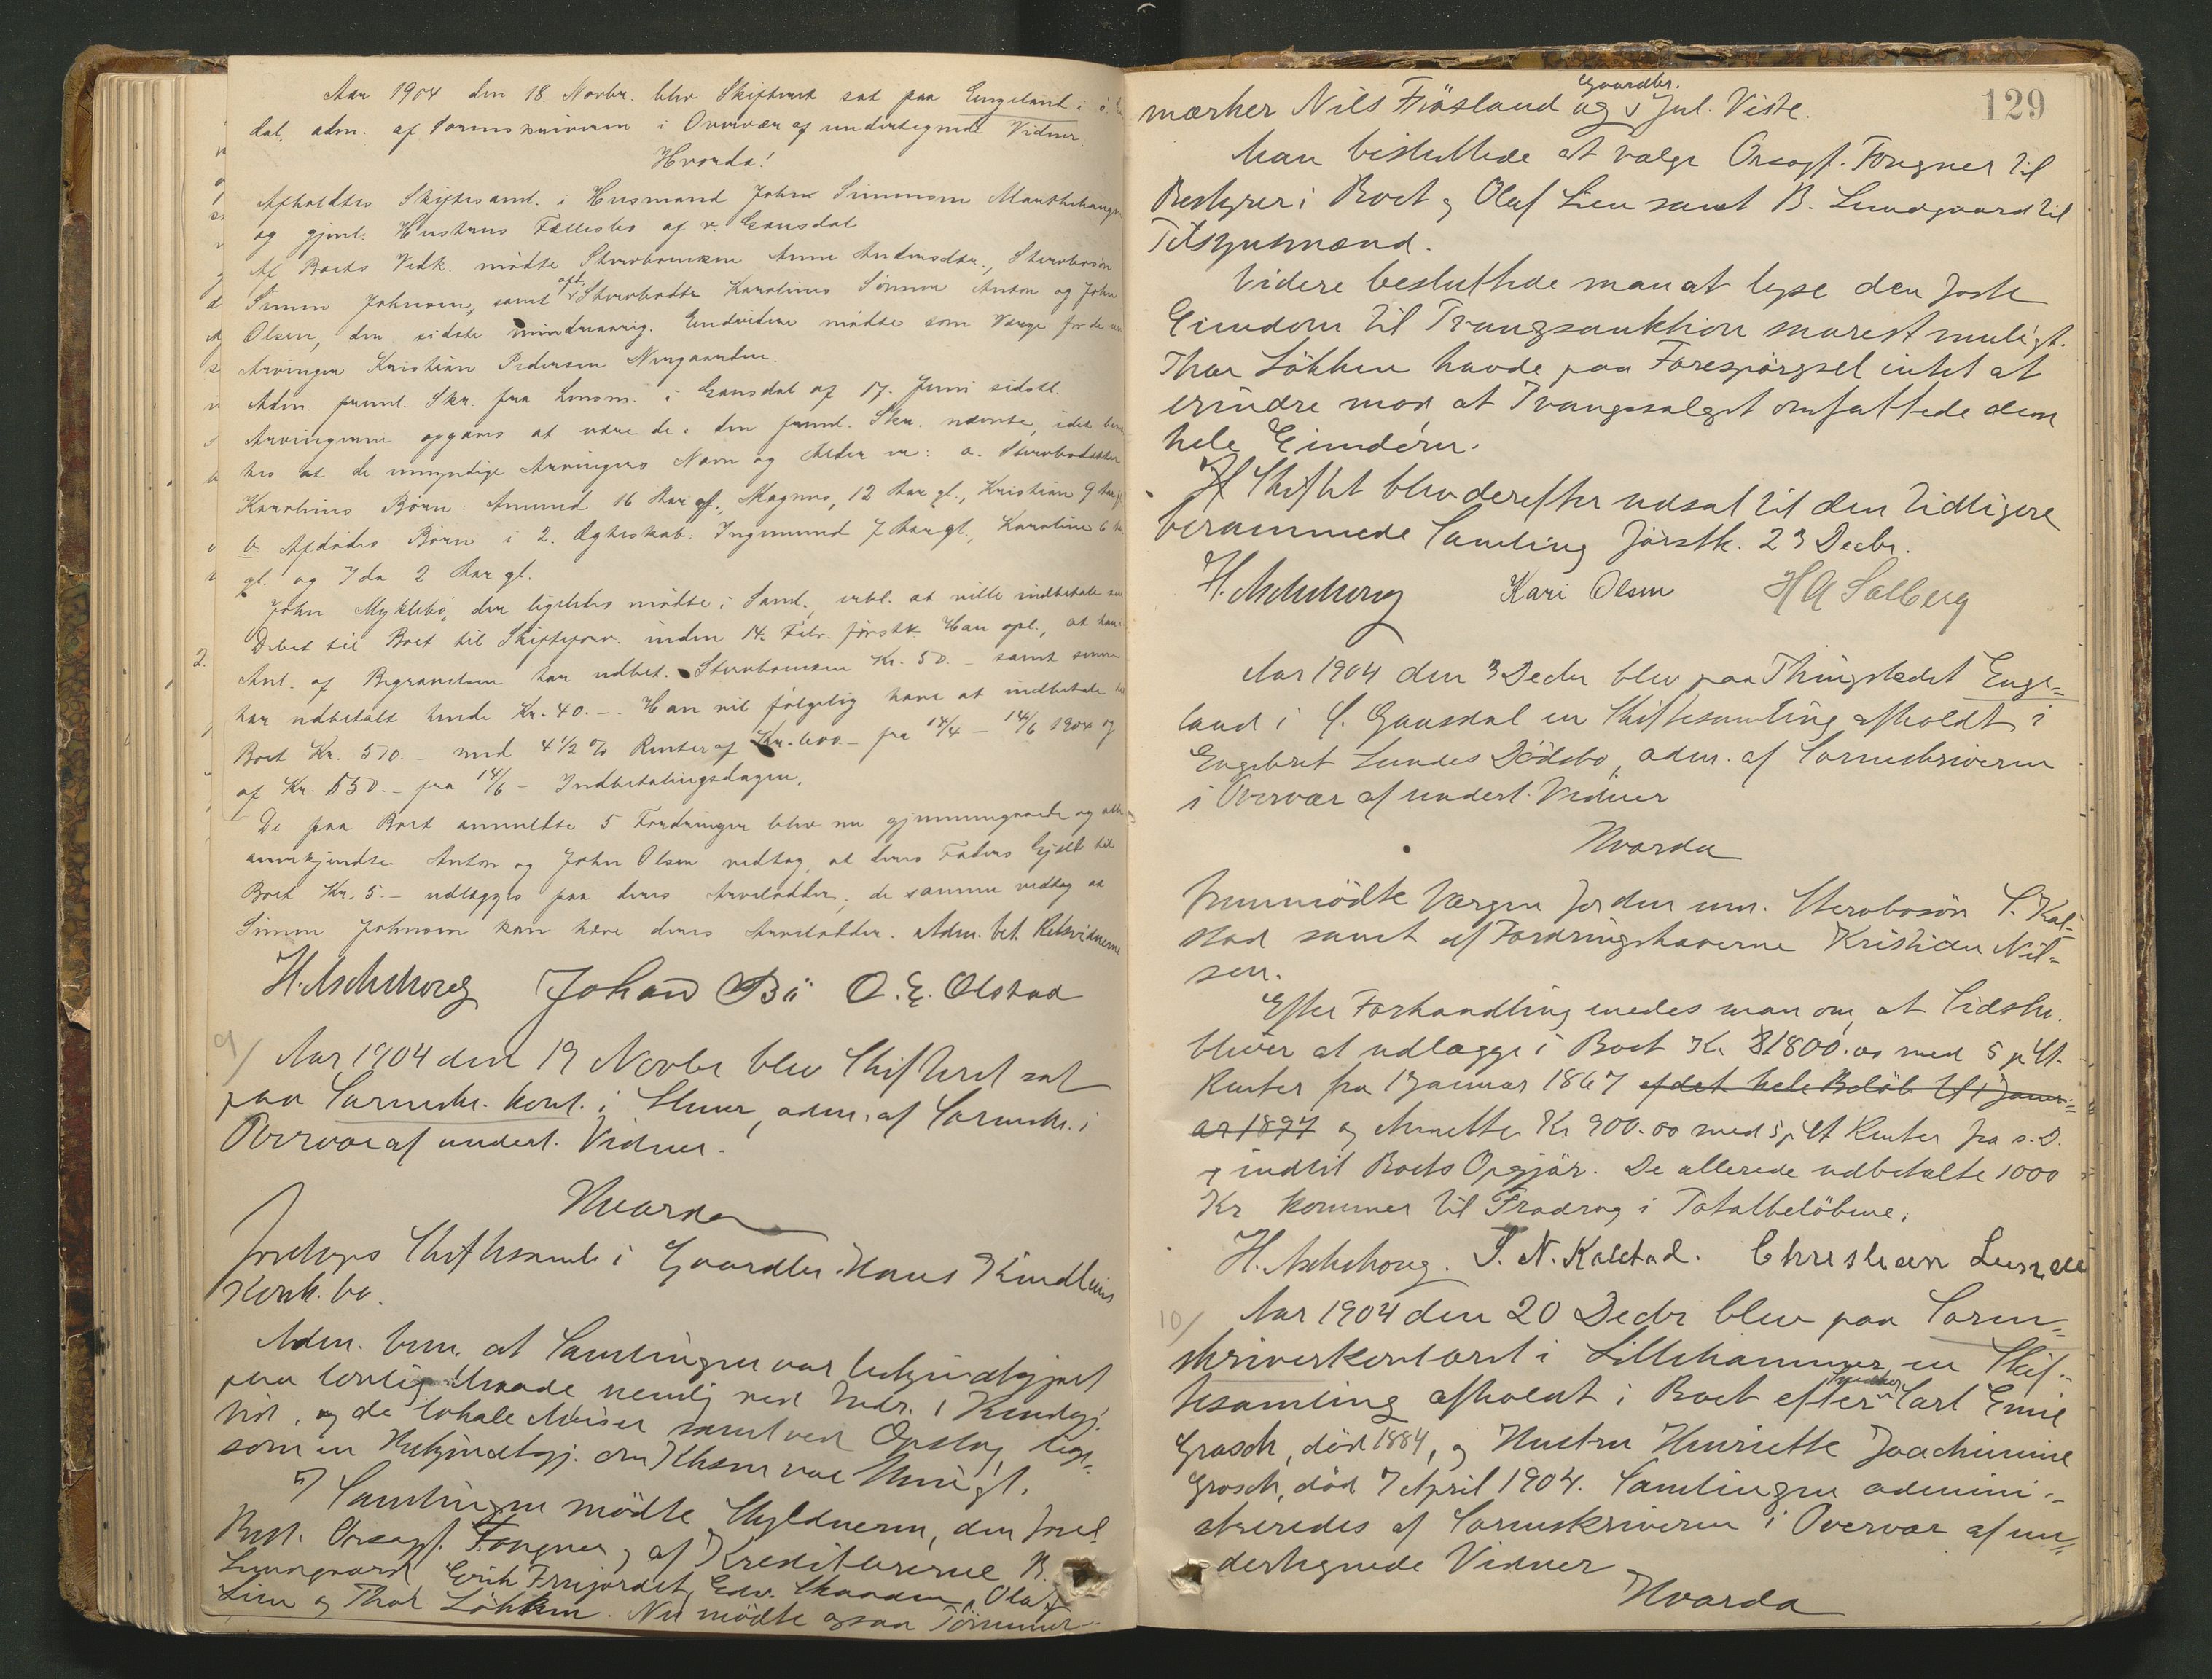 Aar 1904 den 18. Novbr. blev Skifteret sat paa Engeland i ö.
dal, adm. af Sorenskriveren i Overvær af undertegnede Vidner.
Hvorda!
Afholdtes Skiftesaml. i Husmand John Simensen
og gjenl. Hustrus Fællesbo af v. Gausdal
Af Boets Vedk. mödte Stervboenken Anne Andersdtr., Stervbosön
Simen Johnsen, samt afd. Stervbodtr. Karolines Sönner Anton og John
Olsen, den sidste mindreaarig. Endvidere mödte som Værge for de
Arvinger Kristian Pedersen Nergaarden.
Adm. freml. Skr. fra Lensm. i Gausdal af 17. Juni sidstl.
Arvingerne opgaves at være de i den freml. Skr. nævnte, idet
kes at de umyndige Arvingers Navn og Alder er: a. Stervbodatter
Karolines Börn: Amund 16 Aar gl., Magnus, 12 Aar gl., Kristian 9 Aar gl.
b. Afdödes Börn i 2. Ægteskab: Ingemund 7 Aar gl., Karoline 6
gl. og Ida 2 Aar gl.
John Myklebö, der ligeledes mödte i Saml., erkl. at ville indbetale sin
Debet til Boet til Skifteforv. inden 14. Febr. förstk. Han opl., at han i
2.
Anl. af Begravelsen har udbet. Stervboenken Kr. 50.- samt senere
har udbetalt hende Kr. 40.-. Han vil fölgelig have at indbetale til
Boet Kr. 510.- med 4 1/2 % Renter af Kr. 600.- fra 14/4 - 14/6 1904 og
af Kr. 550.- fra 14/6 - Indbetalingsdagen.
De paa Boet anmeldte 5 Fordringer blev nu gjennemgaaede og alle
anerkjendte. Anton og John Olsen vedtog, at deres Faders Gjæld til
Boet Kr. 5.- udlægges paa deres Arvelodder; de samme vedtog at
Simen Johnsen kan hæve deres Arvelodder. Adm. bet. Retsvidnerne
H. Aschehoug Johan Bö O. E. Olstad
9/ Aar 1904 den 19 Novbr blev Skifteret sat
paa Sorenskr. kont. i Lhmr, adm. af Sorenskr. i
Overvær af undert. Vidner.
Hvorda
foretoges Skiftesaml. i Gaardbr. Hans Kindlis
Konk. bo.
Adm. bem. at Samlingen var bekjendtgjort
paa lovlig Maade nemlig ved Indr. i Kundgj.
tid. og de lokale Aviser samt ved Opslag, lige-
som en Bekjendtgj. om
I Samlingen mödte Skyldneren, den forel.
Best. Orsagf. Fougner, af Kreditorerne B.
Lundgaard, Erik Frujordet, Edv. Skaaden, Olaf
Lien og Thor Lökken. Nu mödte ogsaa Tömmer-
129
mærker Nils Fröisland og Gaardbr. Jul. Viste.
Man besluttede at vælge Orsagf. Fougner til
Bestyrer i Boet og Olaf Lien samt B. Lundgaard til
Tilsynsmænd.
Videre besluttede man at lyse den faste
Eiendom til Tvangsauktion snarest muligt.
Thor Lökken havde paa Forespörgsel intet at
erindre mod at Tvangssalget omfattede den
hele Eiendom.
Skiftet blev derefter udsat til den tidligere
berammede Samling förstk. 23 Decbr.
H. Aschehoug Kari Olsen H A Solberg
Aar 1904 den 3 Decbr blev paa Thingstedet Enge-
land i Ö. Gausdal en Skiftesamling afholdt i
Engebret Lundes Dödsbo, adm. af Sorenskriveren
i Overvær af undert. Vidner
Hvorda
fremmödte Værgen for den um. Stervbosön S. Kal-
stad samt af Fordringshaverne Kristian Nil-
sen.
Efter Forhandling enedes man om, at Sidstn.
bliver at udlægge i Boet Kr. 1800.00 med 5 pCt.
Renter fra 1 Januar 1867 af det hele Belöb til 1 Janu-
ar 1897 og Anette Kr 900.00 med 5 pCt Renter fra s. D.
og indtil Boets Opgjör. De allerede udbetalte 1000
Kr kommer til Fradrag i Totalbelöbene.
H. Aschehoug. S. N. Kalstad. Christian Lunde
10/ Aar 1904 den 20 Decbr blev paa Soren-
skriverkontoret i Lillehammer en Skif-
tesamling afholdt i Boet efter Snedker Carl Emil
Grosch, död 1884, og Hustru Henriette Joachimine
Grosch, död 7 April 1904. Samlingen admini-
streredes af Sorenskriveren i Overvær af un-
dertegnede Vidner
Hvorda